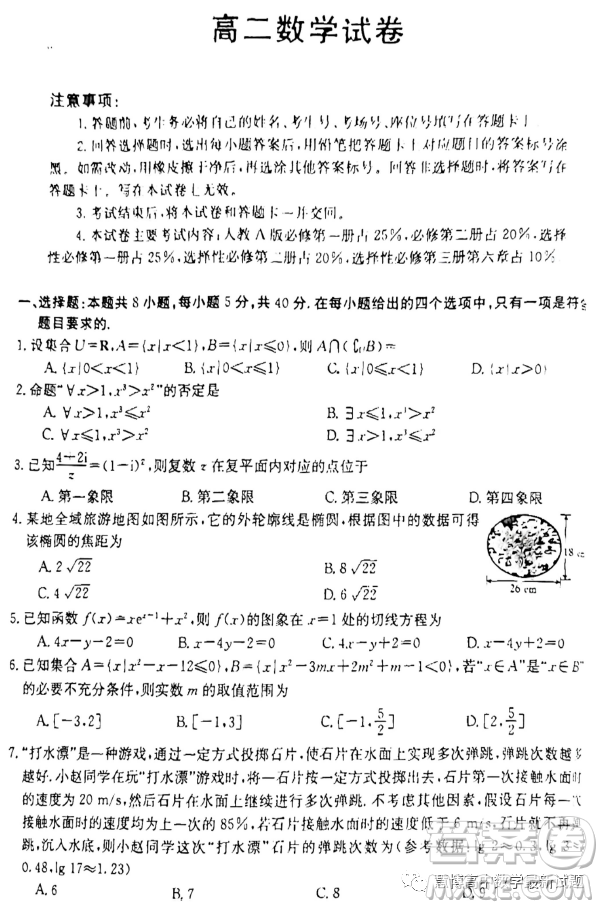 高二数学试卷
注意事项:
1.答题前,考生务必将自己的姓名、考生号、考场号、座位号填写在答题卡上.
2.回答选择题时,选出每小题答案后,用铅笔把答题卡上对应题目的答案标号涂
黑.如需改动,用橡皮擦干净后,再选涂其他答案标号.回答非选择题时,将答案写在
答题卡上.写在本试卷上无效.
3.考试结束后,将本试卷和答题卡一并交回.
4.本试卷主要考试内容:人教A版必修第一册占25%,必修第二册占20%,选择
性必修第一册占25%,选择性必修第二册占20%,选择性必修第三册第六章占10%
一、选择题:本题共8小题,每小题5分,共40分.在每小题给出的四个选项中,只有一项是符合
题目要求的.
1.设集合U=R,A={x|x<1},B={x|x<0},则A∩(∁UB)=
A.{x|0<x<1} B.{x|0<x≤1} C.{x|0≤x<1} D.{x|x>0}
2.命题“∀x>1,x³>x²”的否定是
A.∀x>1,x³≤x² B.∃x≤1,x³>x²
C.∀x≤1,x³≤x² D.∃x>1,x³≤x²
3.已知(4+2i)/z=(1-i)²,则复数z在复平面内对应的点位于
A.第一象限 B.第二象限 C.第三象限 D.第四象限
4.某地全域旅游地图如图所示,它的外轮廓线是椭圆,根据图中的数据可得
该椭圆的焦距为
A.2√22 B.8√22
C.4√22 D.6√22
18 cm
26 cm
5.已知函数f(x)=xeˣ⁻¹+x²,则f(x)的图象在x=1处的切线方程为
A.4x-y-2=0 B.x-4y-2=0 C.x-4y+2=0 D.4x-y+2=0
6.已知集合A={x|x²-x-12≤0},B={x|x²-3mx+2m²+m-1<0},若“x∈A”是“x∈B”
的必要不充分条件,则实数m的取值范围为
A.[-3,2] B.[-1,3] C.[-1,5/2] D.[2,5/2]
7.“打水漂”是一种游戏,通过一定方式投掷石片,使石片在水面上实现多次弹跳,弹跳次数越多
越好.小赵同学在玩“打水漂”游戏时,将一石片按一定方式投掷出去,石片第一次接触水面时
的速度为20 m/s,然后石片在水面上继续进行多次弹跳.不考虑其他因素,假设石片每一次
接触水面时的速度均为上一次的85%,若石片接触水面时的速度低于6 m/s,石片就不再弹
跳,沉入水底,则小赵同学这次“打水漂”石片的弹跳次数为(参考数据:lg 2≈0.3,lg 3≈
0.48,lg 17≈1.23)
A.6 B.7 C.8 D.9